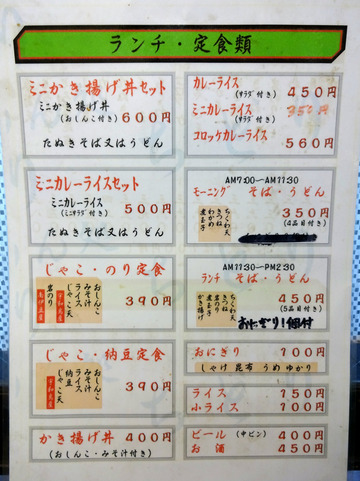 ランチ・定食類
ミニかき揚げ丼セット
ミニかき揚げ丼
(おしんこ付き) 600円
たぬきそば又はうどん
カレーライス
(サラダ付き) 450円
ミニカレーライス
(サラダ付き) 350円
コロッケカレーライス
560円
ミニカレーライスセット
(ミニサラダ付き) 500円
たぬきそば又はうどん
AM7:00—AM11:30
モーニング そば・うどん
ちくわ天
きつね
わかめ
煮玉子
350円
(4品目付き)
じゃこ・のり定食
おしんこ
みそ汁
ライス
じゃこ天
岩のり
宇和島産
390円
AM11:30—PM2:30
ランチ そば・うどん
ちくわ天
きつね
岩のり
煮玉子
かき揚げ
450円
(5品目付き)
おにぎり1個付
じゃこ・納豆定食
おしんこ
みそ汁
ライス
納豆
じゃこ天
宇和島産
390円
おにぎり 100円
しゃけ 昆布 うめ ゆかり
ライス 150円
小ライス 100円
かき揚げ丼 400円
(おしんこ・みそ汁付き)
ビール (中ビン) 400円
お酒 450円